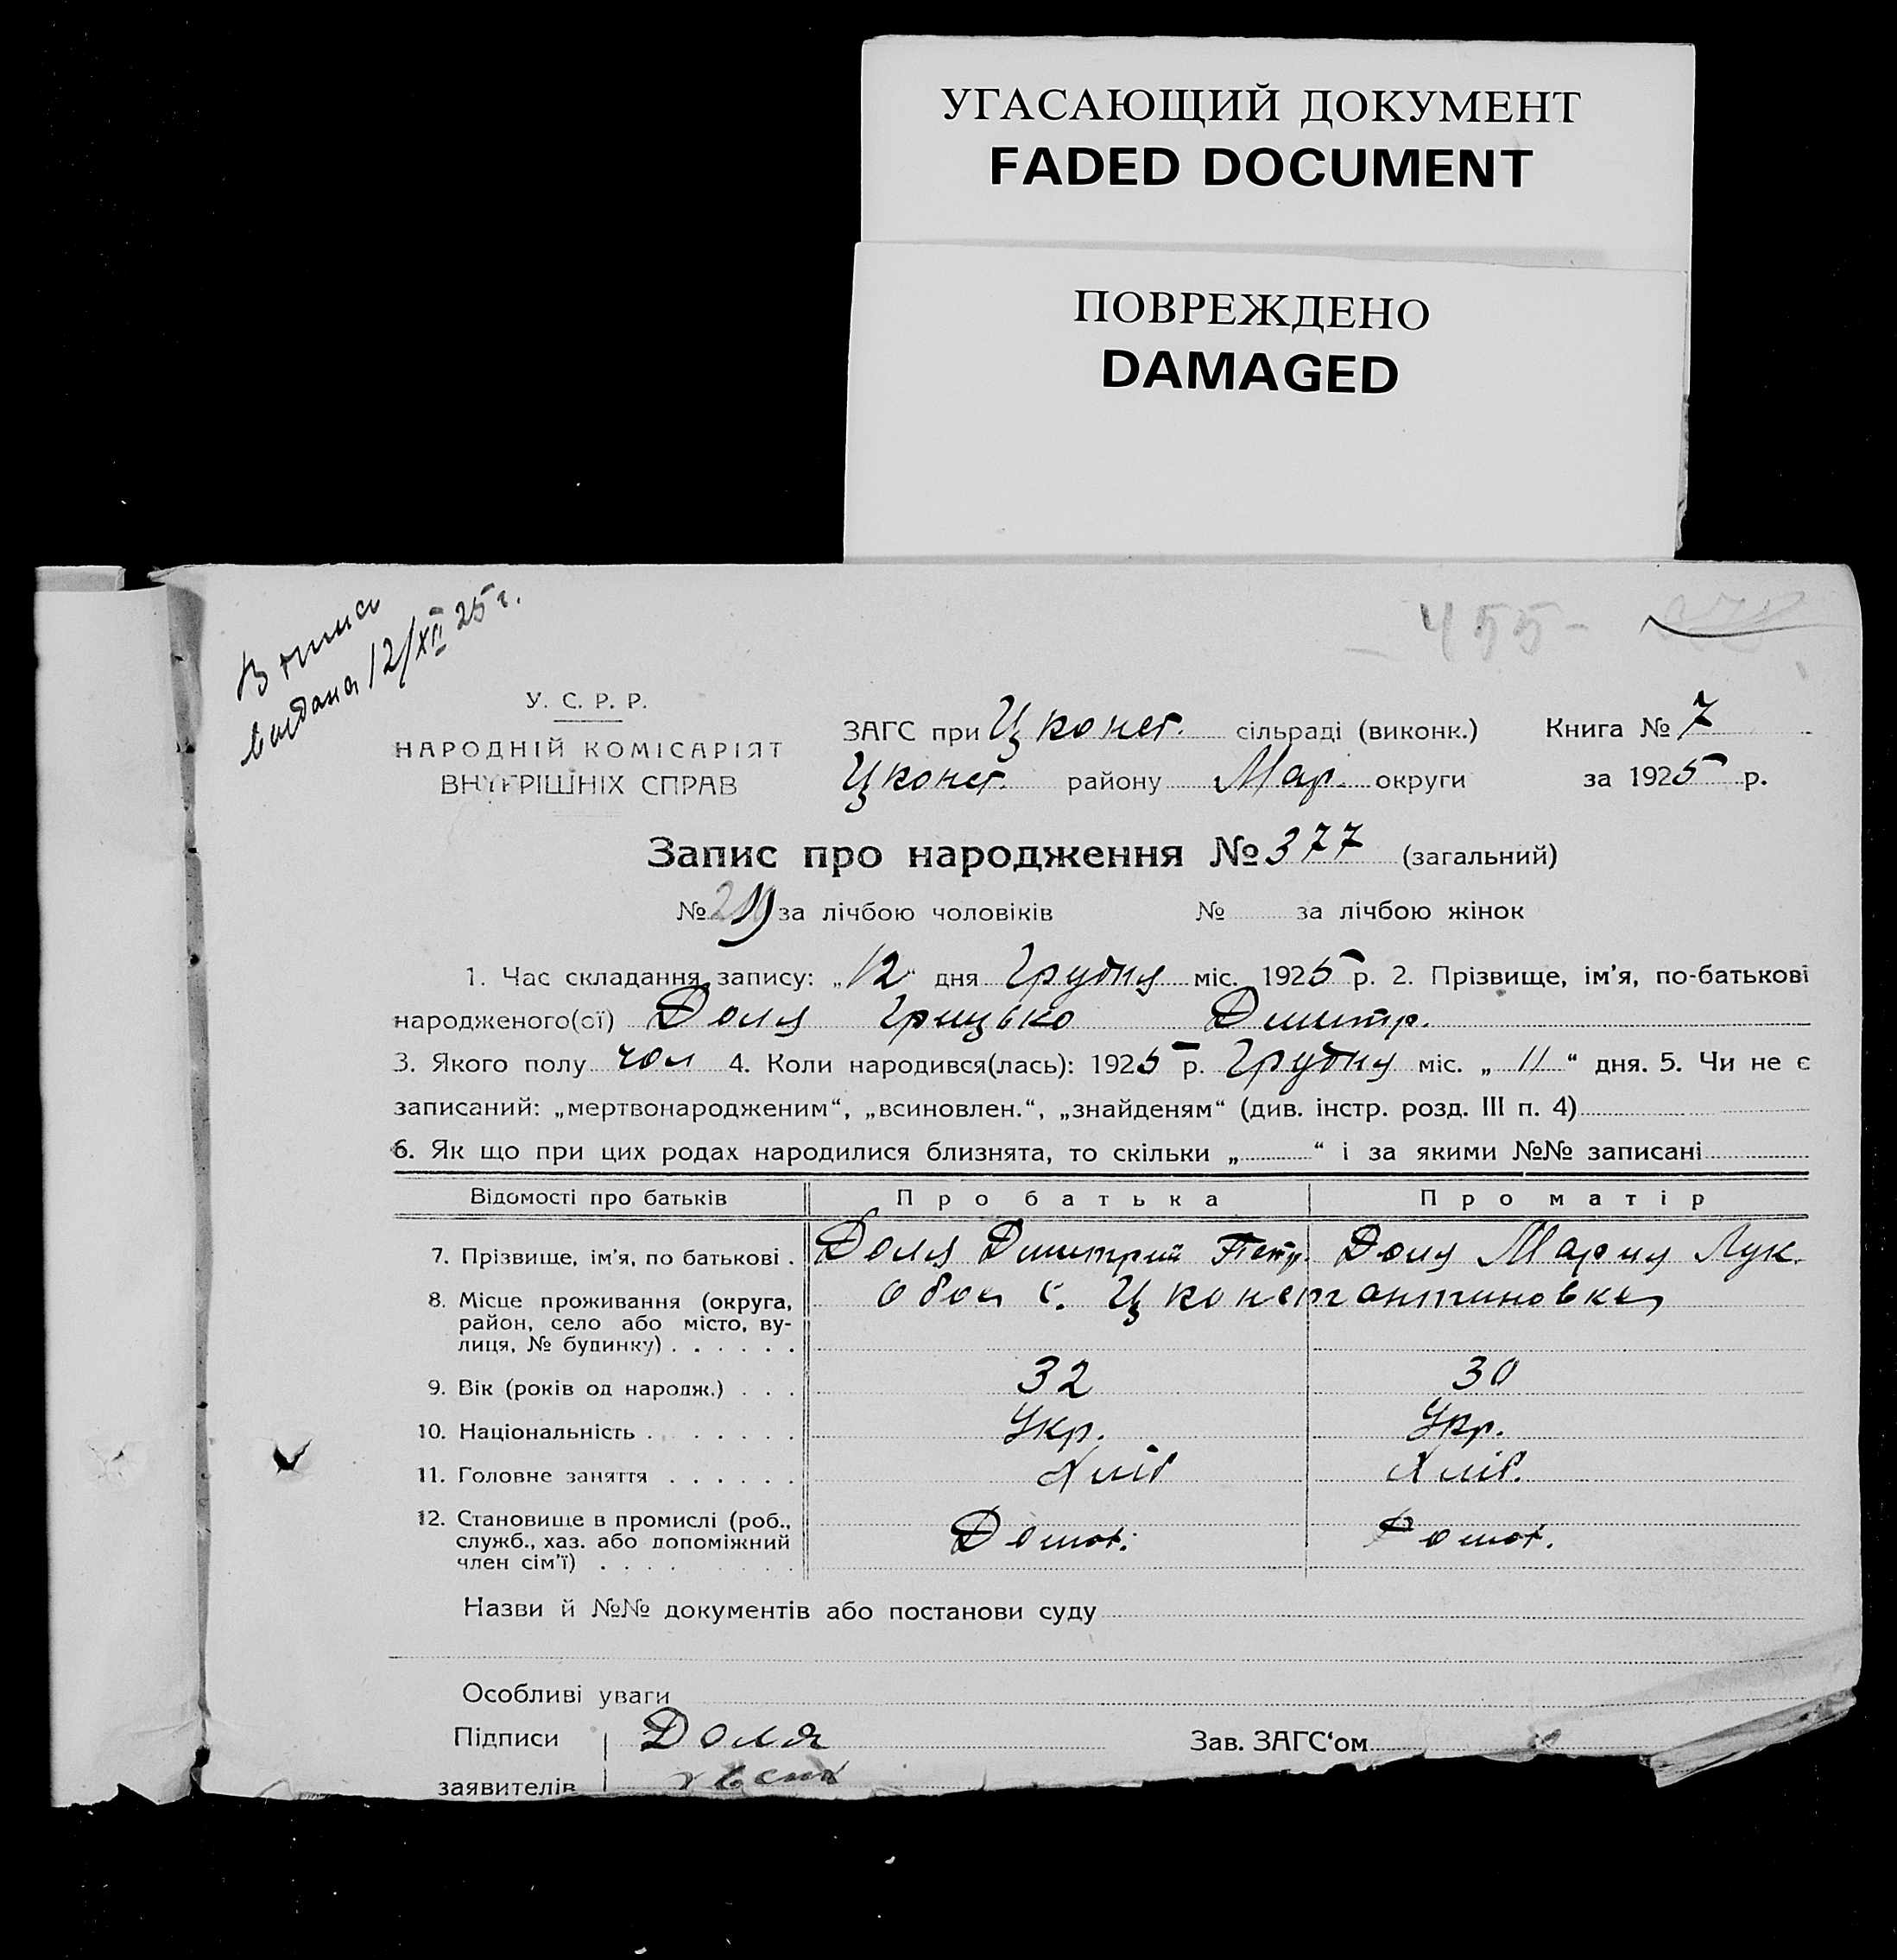 УГАСАЮЩИЙ ДОКУМЕНТ
FADED DOCUMENT
ПОВРЕЖДЕНО
DAMAGED
455-
Выпись
выдана 12/XII 25 г.
У. С. Р. Р.
НАРОДНІЙ КОМІСАРІЯТ
ВНУТРІШНІХ СПРАВ
ЗАГС при Цконст. сільраді (виконк.) Книга № 7
Цконст. району Мар. округи за 1925 р.
Запис про народження № 377 (загальний)
№ за лічбою чоловіків № за лічбою жінок
1. Час складання запису: „12“ дня Грудня міс. 1925 р. 2. Прізвище, ім'я, по-батькові
народженого(ої) Доля Грицько Дмитр.
3. Якого полу чол 4. Коли народився(лась): 1925 р. Грудня міс. „11“ дня. 5. Чи не є
записаний: „мертвонародженим“, „всиновлен.“, „знайденям“ (див. інстр. розд. III п. 4)
6. Як що при цих родах народилися близнята, то скільки „ “ і за якими №№ записані
Відомості про батьків Про батька Про матір
7. Прізвище, ім'я, по батькові . Доля Дмитрий Петр. Доля Мария Лук.
8. Місце проживання (округа, обоя с. Цконстантиновка
район, село або місто, ву-
лиця, № будинку) . . . . . .
9. Вік (років од народж.) . . . 32 30
10. Національність . . . . . . . Укр. Укр.
11. Головне заняття . . . . . . Хліб Хліб.
12. Становище в промислі (роб.,
служб., хаз. або допоміжний Домог. Домог.
член сім'ї) . . . . . . . . .
Назви й №№ документів або постанови суду
Особливі уваги
Підписи Доля Зав. ЗАГС‘ом
заявителів